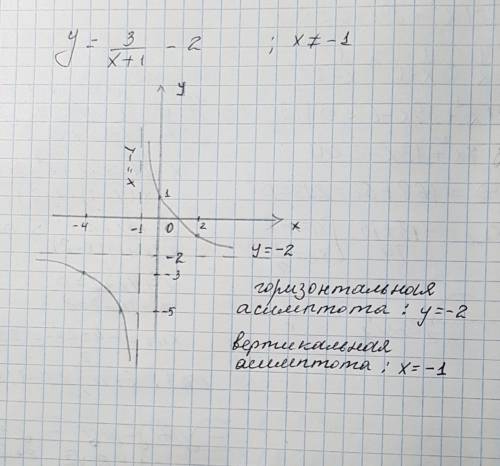 y = 3/(x+1) - 2 ; x ≠ -1
y
x = -1
1
-4 -1 0 2 x
y = -2
-2
-3
-5
горизонтальная
асимптота : y = -2
вертикальная
асимптота : x = -1